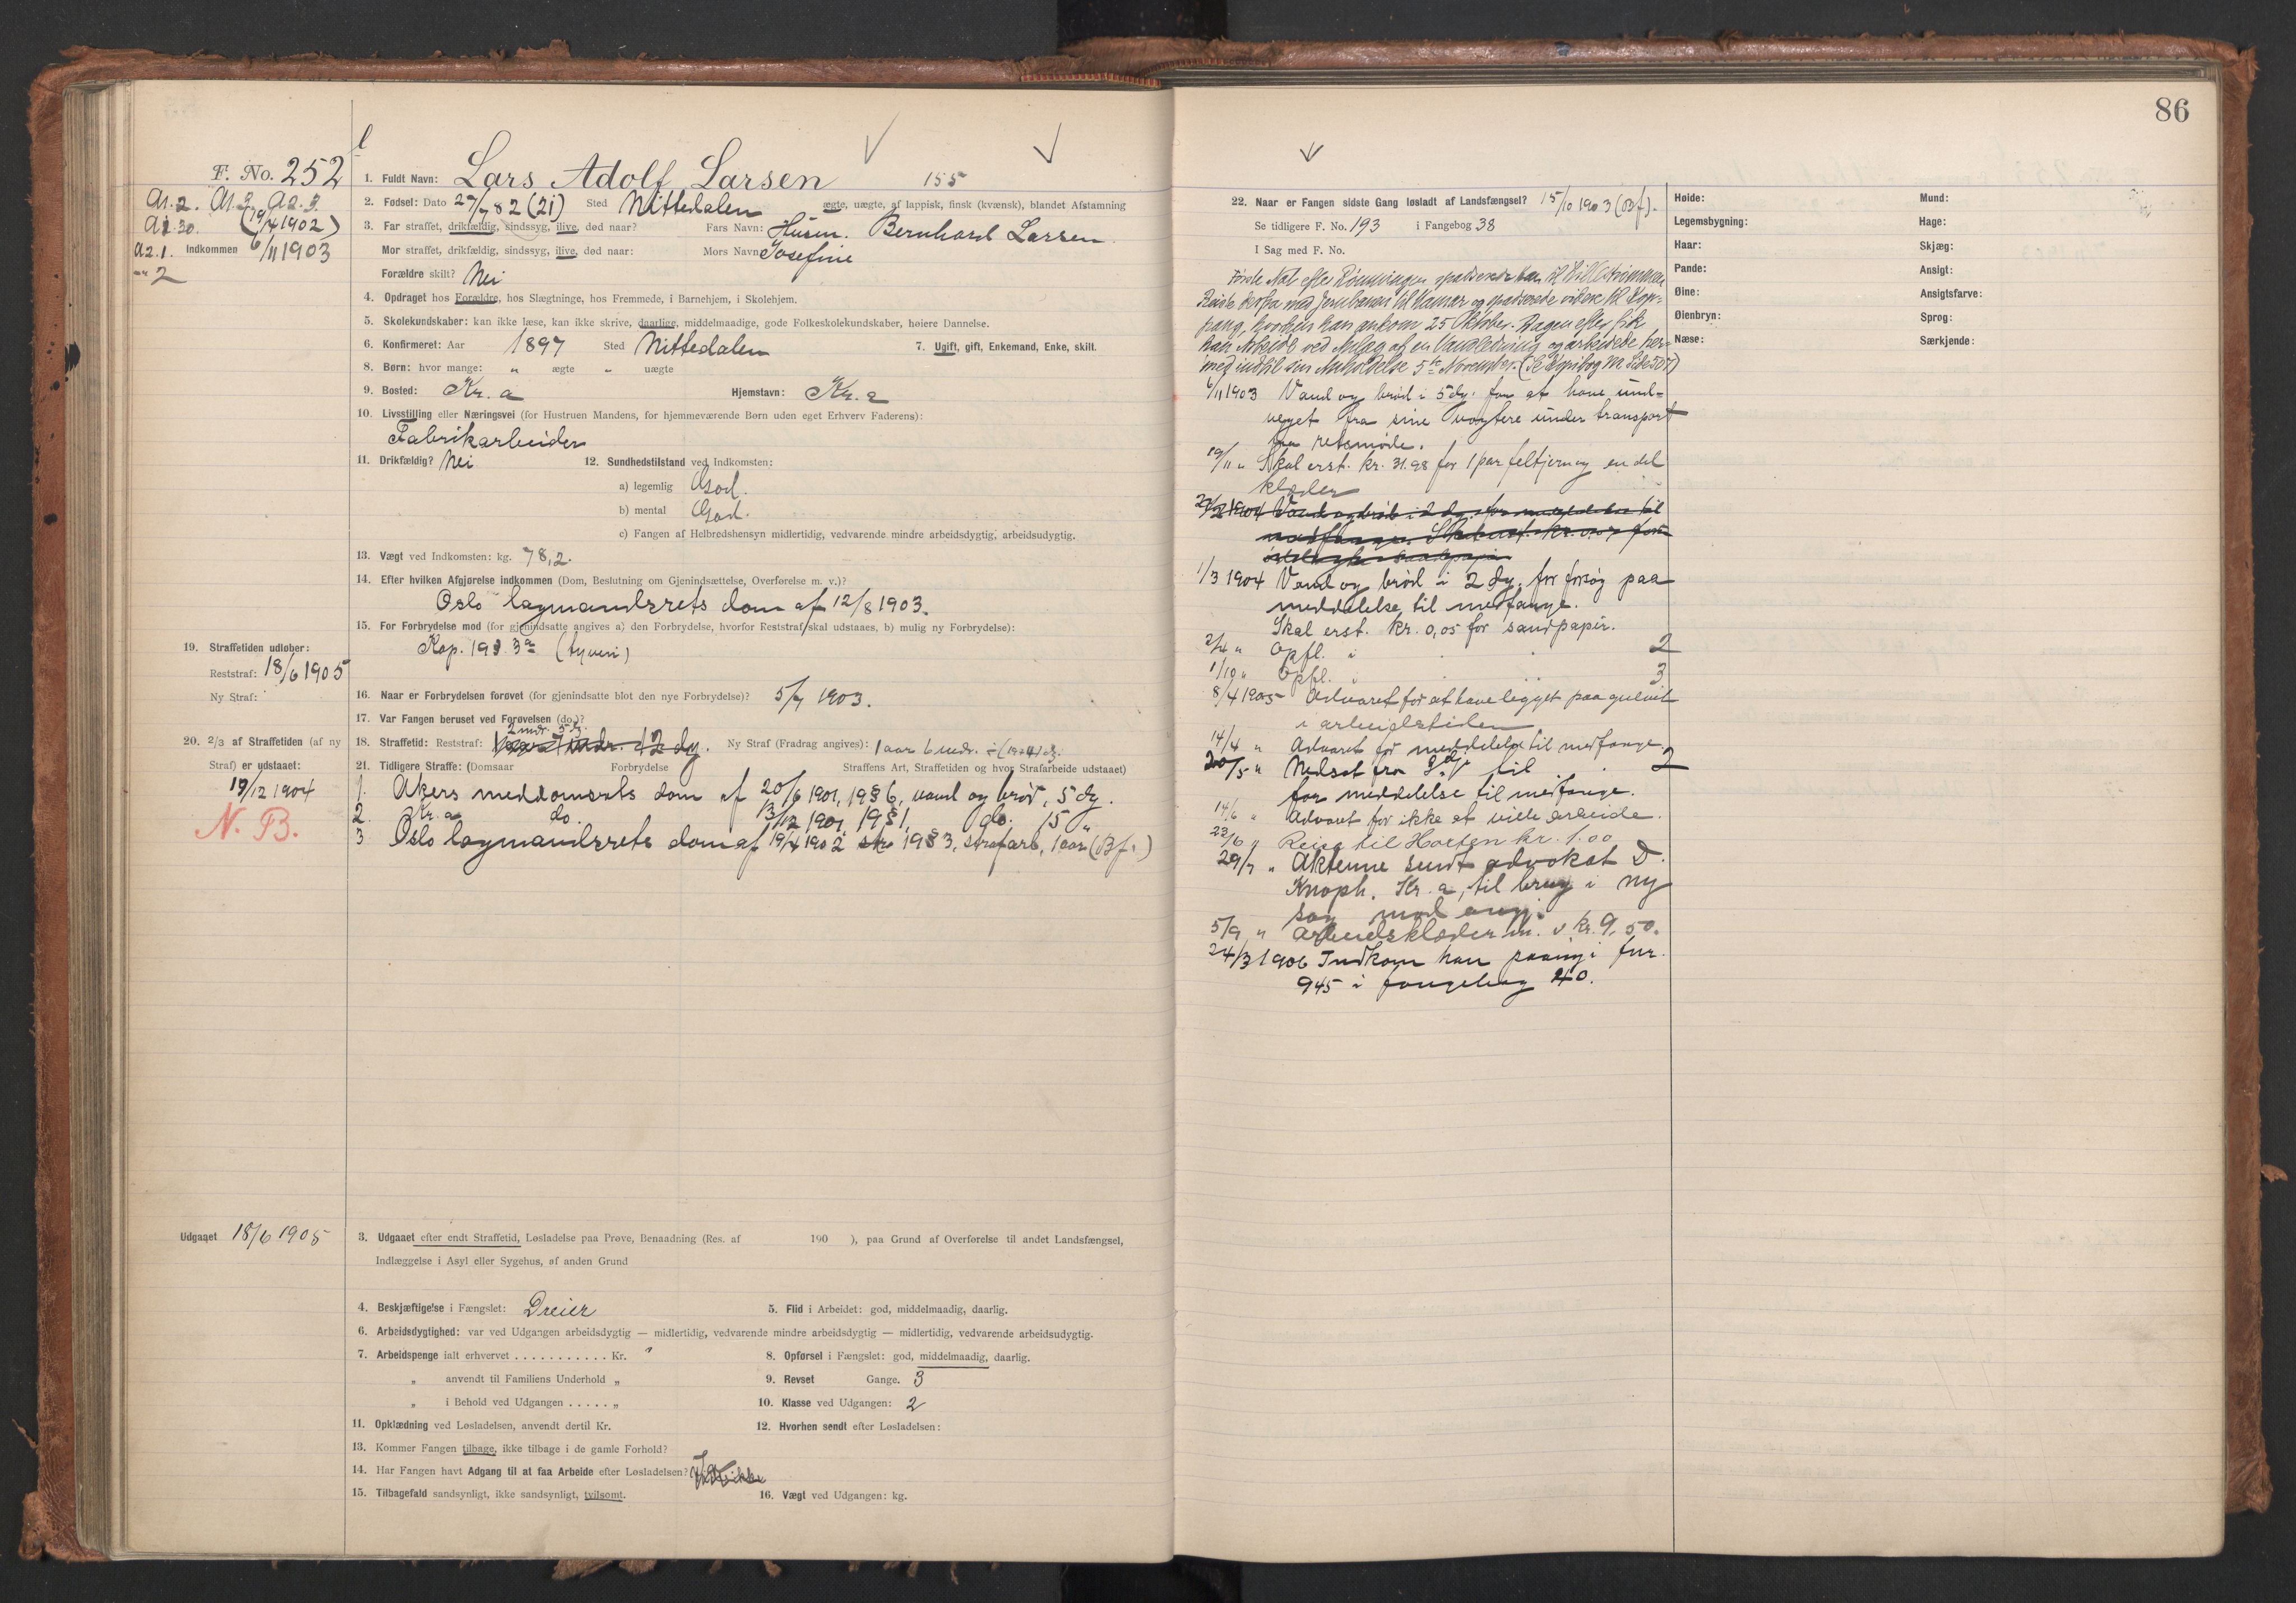 86
F. No. 252
A1.2. A1.3. A2.3.
A1.30. (19/4 1902)
A2.1. Indkommen 6/11 1903
" 2
1. Fuldt Navn: Lars Adolf Larsen 155
2. Fødsel: Dato 27/7 82 (21) Sted Nittedalen ægte, uægte, af lappisk, finsk (kvænsk), blandet Afstamning
3. Far straffet, drikfældig, sindssyg, ilive, død naar? Fars Navn: Husm. Bernhard Larsen.
Mor straffet, drikfældig, sindssyg, ilive, død naar: Mors Navn Josefine
Forældre skilt? Nei
4. Opdraget hos Forældre, hos Slægtninge, hos Fremmede, i Barnehjem, i Skolehjem.
5. Skolekundskaber: kan ikke læse, kan ikke skrive, daarlige, middelmaadige, gode Folkeskolekundskaber, høiere Dannelse.
6. Konfirmeret: Aar 1897 Sted Nittedalen 7. Ugift, gift, Enkemand, Enke, skilt.
8. Børn: hvor mange: " ægte " uægte
9. Bosted: Kr. a Hjemstavn: Kr. a
10. Livsstilling eller Næringsvei (for Hustruen Mandens, for hjemmeværende Børn uden eget Erhverv Faderens):
Fabrikarbeider
11. Drikfældig? Nei 12. Sundhedstilstand ved Indkomsten:
a) legemlig God.
b) mental God.
c) Fangen af Helbredshensyn midlertidig, vedvarende mindre arbeidsdygtig, arbeidsudygtig.
13. Vægt ved Indkomsten: kg. 78,2.
14. Efter hvilken Afgjørelse indkommen (Dom, Beslutning om Gjenindsættelse, Overførelse m. v.)?
Oslo lagmandsrets dom af 12/8 1903.
15. For Forbrydelse mod (for gjenindsatte angives a) den Forbrydelse, hvorfor Reststraf skal udstaaes, b) mulig ny Forbrydelse):
Kap. 19 § 3 (tyveri)
19. Straffetiden udløber:
Reststraf: 18/6 1905
Ny Straf:
16. Naar er Forbrydelsen forøvet (for gjenindsatte blot den nye Forbrydelse)? 5/7 1903.
17. Var Fangen beruset ved Forøvelsen (do.)?
20. 2/3 af Straffetiden (af ny
Straf) er udstaaet:
19/12 1904
N. B.
18. Straffetid: Reststraf: 12 dg. Ny Straf (Fradrag angives): 1 aar 6 mdr.
21. Tidligere Straffe: (Domsaar Forbrydelse Straffens Art, Straffetiden og hvor Strafarbeide udstaaet)
1. Akers meddomsrets dom af 20/6 1901, 19 § 6, vand og brød, 5 dg.
2. Kr. a do. 13/12 1901, 19 § 1, do. 15 "
3 Oslo lagmandsrets dom af 19/4 1902 19 § 3, strafarb, 1 aar (Bf.)
Udgaaet 18/6 1905
3. Udgaaet efter endt Straffetid, Løsladelse paa Prøve, Benaadning (Res. af 190 ), paa Grund af Overførelse til andet Landsfængsel,
Indlæggelse i Asyl eller Sygehus, af anden Grund
4. Beskjæftigelse i Fængslet: Dreier 5. Flid i Arbeidet: god, middelmaadig, daarlig.
6. Arbeidsdygtighed: var ved Udgangen arbeidsdygtig — midlertidig, vedvarende mindre arbeidsdygtig — midlertidig, vedvarende arbeidsudygtig.
7. Arbeidspenge ialt erhvervet . . . . . . . . . . . Kr. " 8. Opførsel i Fængslet: god, middelmaadig, daarlig.
„ anvendt til Familiens Underhold „ 9. Revset Gange. 3
„ i Behold ved Udgangen . . . . . „ 10. Klasse ved Udgangen: 2
11. Opklædning ved Løsladelsen, anvendt dertil Kr. 12. Hvorhen sendt efter Løsladelsen:
13. Kommer Fangen tilbage, ikke tilbage i de gamle Forhold?
14. Har Fangen havt Adgang til at faa Arbeide efter Løsladelsen?
15. Tilbagefald sandsynligt, ikke sandsynligt, tvilsomt. 16. Vægt ved Udgangen: kg.
22. Naar er Fangen sidste Gang løsladt af Landsfængsel? 15/10 1903 (Bf).
Se tidligere F. No. 193 i Fangebog 38
I Sag med F. No.
Første Nat efter Rømningen spadserede han til Lillestrømmen
Reiste derfra med Jernbanen til Hamar og spadserede videre til Kop-
pang, hvorhen han ankom 25 Oktober. Dagen efter fik
han Arbeide ved Anlæg af en Vandledning og arbeidede her-
med indtil sin Anholdelse 5te November. (Se Kopibog
6/11 1903 Vand og brød i 5 dg. for at have und-
veget fra sine vogtere under transport
fra retsmøde.
19/11 " Skal erst. kr. 31.98 for 1 par feltjern og en del
klæder
1/3 1904 Vand og brød i 2 dg. for forsøg paa
meddelelse til medfange.
Skal erst. kr. 0,05 for sandpapir.
2/4 " Opfl. i . . 2
1/10 " Opfl. i . . 3
8/4 1905 Advaret for at have ligget paa gulvet
i arbeidstiden
14/4 " Advaret for meddelelse til medfange.
20/5 " Nedsat fra 3die til . 2
for meddelelse til medfange.
14/6 " Advaret for ikke at ville arbeide.
23/6 " Reise til Horten kr. 1.00
29/7 " Akterne sendt advokat D.
Knoph. Kr. a, til brug i ny
sag mod ang.
5/9 " Arbeidsklæder m. v kr. 9,50.
24/3 1906 Indkom han paany i fnr.
945 i fangebog 40.
Høide:
Legemsbygning:
Haar:
Pande:
Øine:
Øienbryn:
Næse:
Mund:
Hage:
Skjæg:
Ansigt:
Ansigtsfarve:
Sprog:
Særkjende: